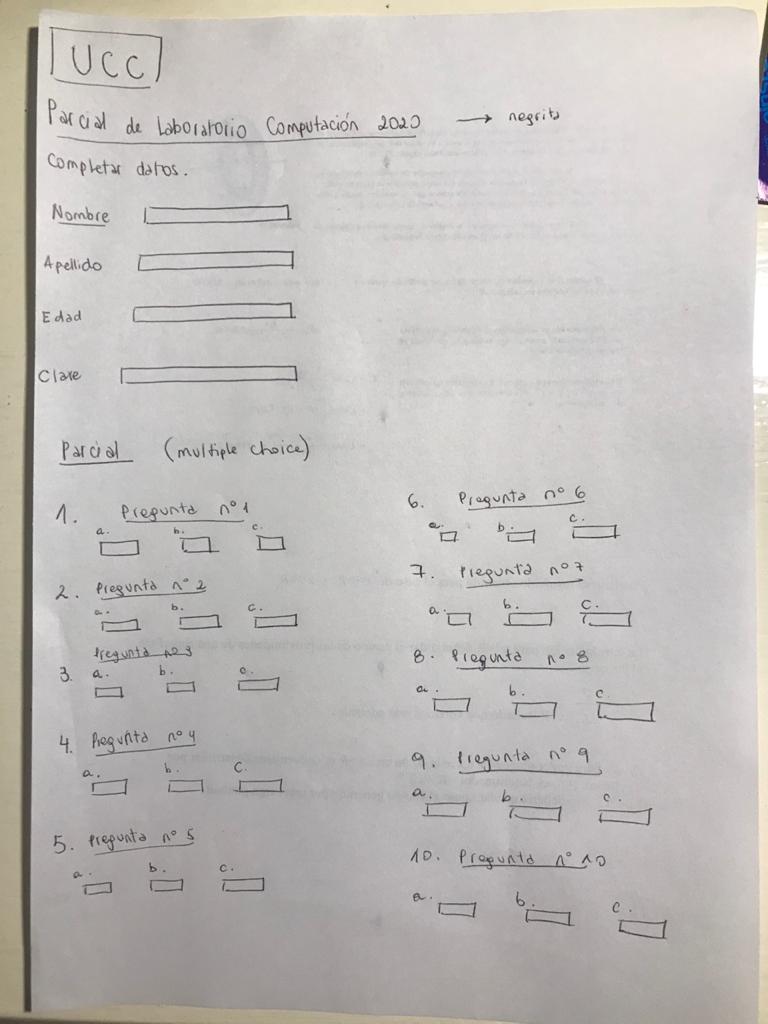 UCC
Parcial de Laboratorio Computación 2020 → negrita
Completar datos.
Nombre
Apellido
Edad
Clave
Parcial (multiple choice)
1. Pregunta nº 1
a. b. c.
2. Pregunta nº 2
a. b. c.
Pregunta nº 3
3. a. b. c.
4. Pregunta nº 4
a. b. c.
5. Pregunta nº 5
a. b. c.
6. Pregunta nº 6
a. b. c.
7. Pregunta nº 7
a. b. c.
8. Pregunta nº 8
a. b. c.
9. Pregunta nº 9
a. b. c.
10. Pregunta nº 10
a. b. c.